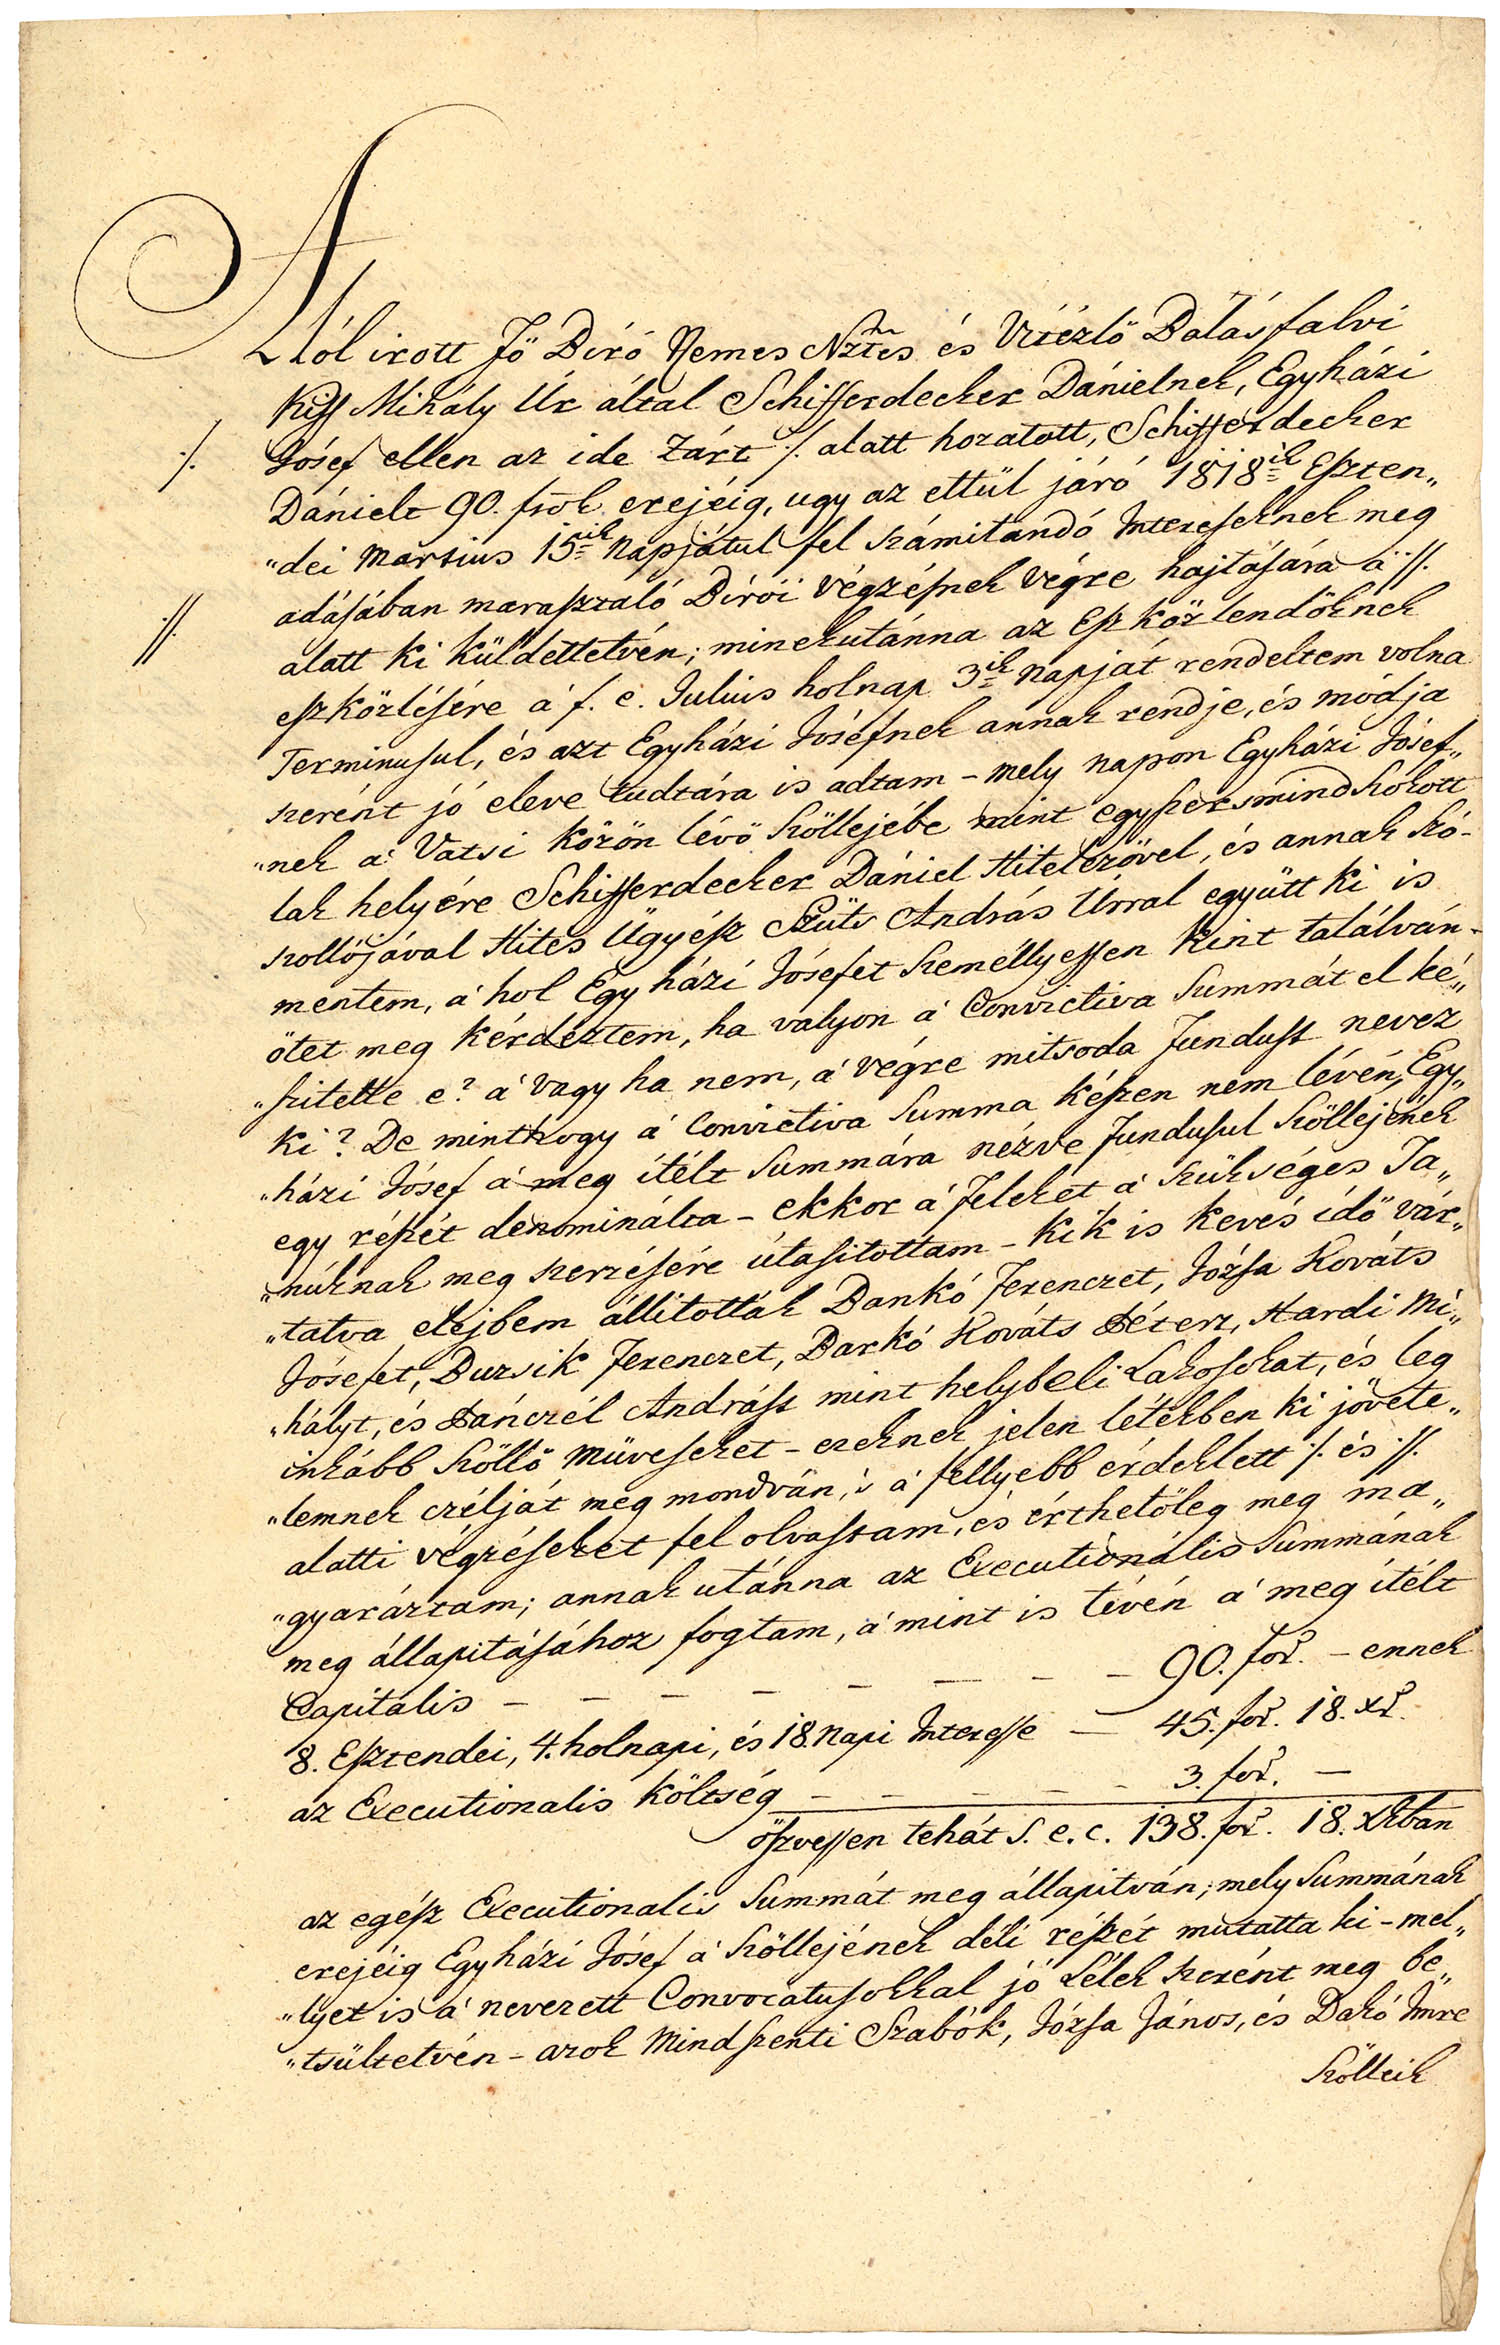 Alól irott Fő Biró Nemes Nztes és Vitézlő Balásfalvi
Kiss Mihály Úr által Schifferdecker Dánielnek, Egyházi
Jósef ellen az ide Zárt ·/. alatt hozatott, Schifferdecker
·/.
Dánielt 90. frok erejéig, ugy az ettül járó 1818ik Eszten„
„dei Martius 15ik Napjátul fel számitandó Interesseknek meg
adásában marasztaló Birói Végzésnek Végre hajtására a ·//.
·//.
alatt ki küldettetvén; minekutánna az Eszközlendőknek
eszközlésére a' f. e. Julius holnap 3ik Napját rendeltem volna
Terminusul, és azt Egyházi Jósefnek annak rendje, és módja
szerént jó eleve tudtára is adtam – mely napon Egyházi Jósef„
„nek a' Vatsi közön lévő Szöllejébe mint egyszersmind szokott
lak helyére Schifferdecker Dániel Hitelezővel, és annak Szó-
szollójával Hites Ügyész Szüts András Urral együtt ki is
mentem, a' hol Egyházi Jósefet Személlyessen kint találván –
ötet meg kérdeztem, ha valyon a' Convictiva Summát el ké„
„szitette e? a' vagy ha nem, a' végre mitsoda Fundust nevez
ki? De minthogy a' Convictiva Summa készen nem lévén, Egy„
„házi Jósef a' meg itélt Summára nézve Fundusul Szöllejének
egy részét denominálta – ekkor a' Feleket a' szükséges Ta„
„núknak meg szerzésére útasitottam – kik is kevés idő vár„
„tatva elejbem állitották Dankó Ferenczet, Józsa Kováts
Jósefet, Buzsik Ferenczet, Barkó Kováts Péterz, Hardi Mi„
„hályt, és Dánczél Andrást mint helybeli Lakosokat, és leg
inkább Szöllő Müveseket – ezeknek jelen létekben ki jövete„
„lemnek czélját meg mondván, 's a' fellyebb érdeklett ·/. és ·//.
alatti végzéseket fel olvastam, és érthetőleg meg ma„
„gyaráztam; annak utánna az Executionális Summának
meg állapitásához fogtam, a' mint is tévén a' meg itélt
Capitalis – – – – – – – – 90. for. – ennek
8. Esztendei, 4. holnapi, és 18. Napi Interesse – 45. for. 18. xr.
az Executionalis költség – – – – – 3. for. –
öszvessen tehát S. e. c. 138. for. 18. Xrban
az egész Executionalis Summát meg állapitván; mely Summának
erejéig Egyházi Jósef a' Szöllejének déli részét mutatta ki – mel„
„lyet is a' nevezett Convocatusokkal jó Lélek szerént meg be„
„tsültetvén – azok Mindszenti Szabók, Józsa János, és Dakó Imre
Szölleik